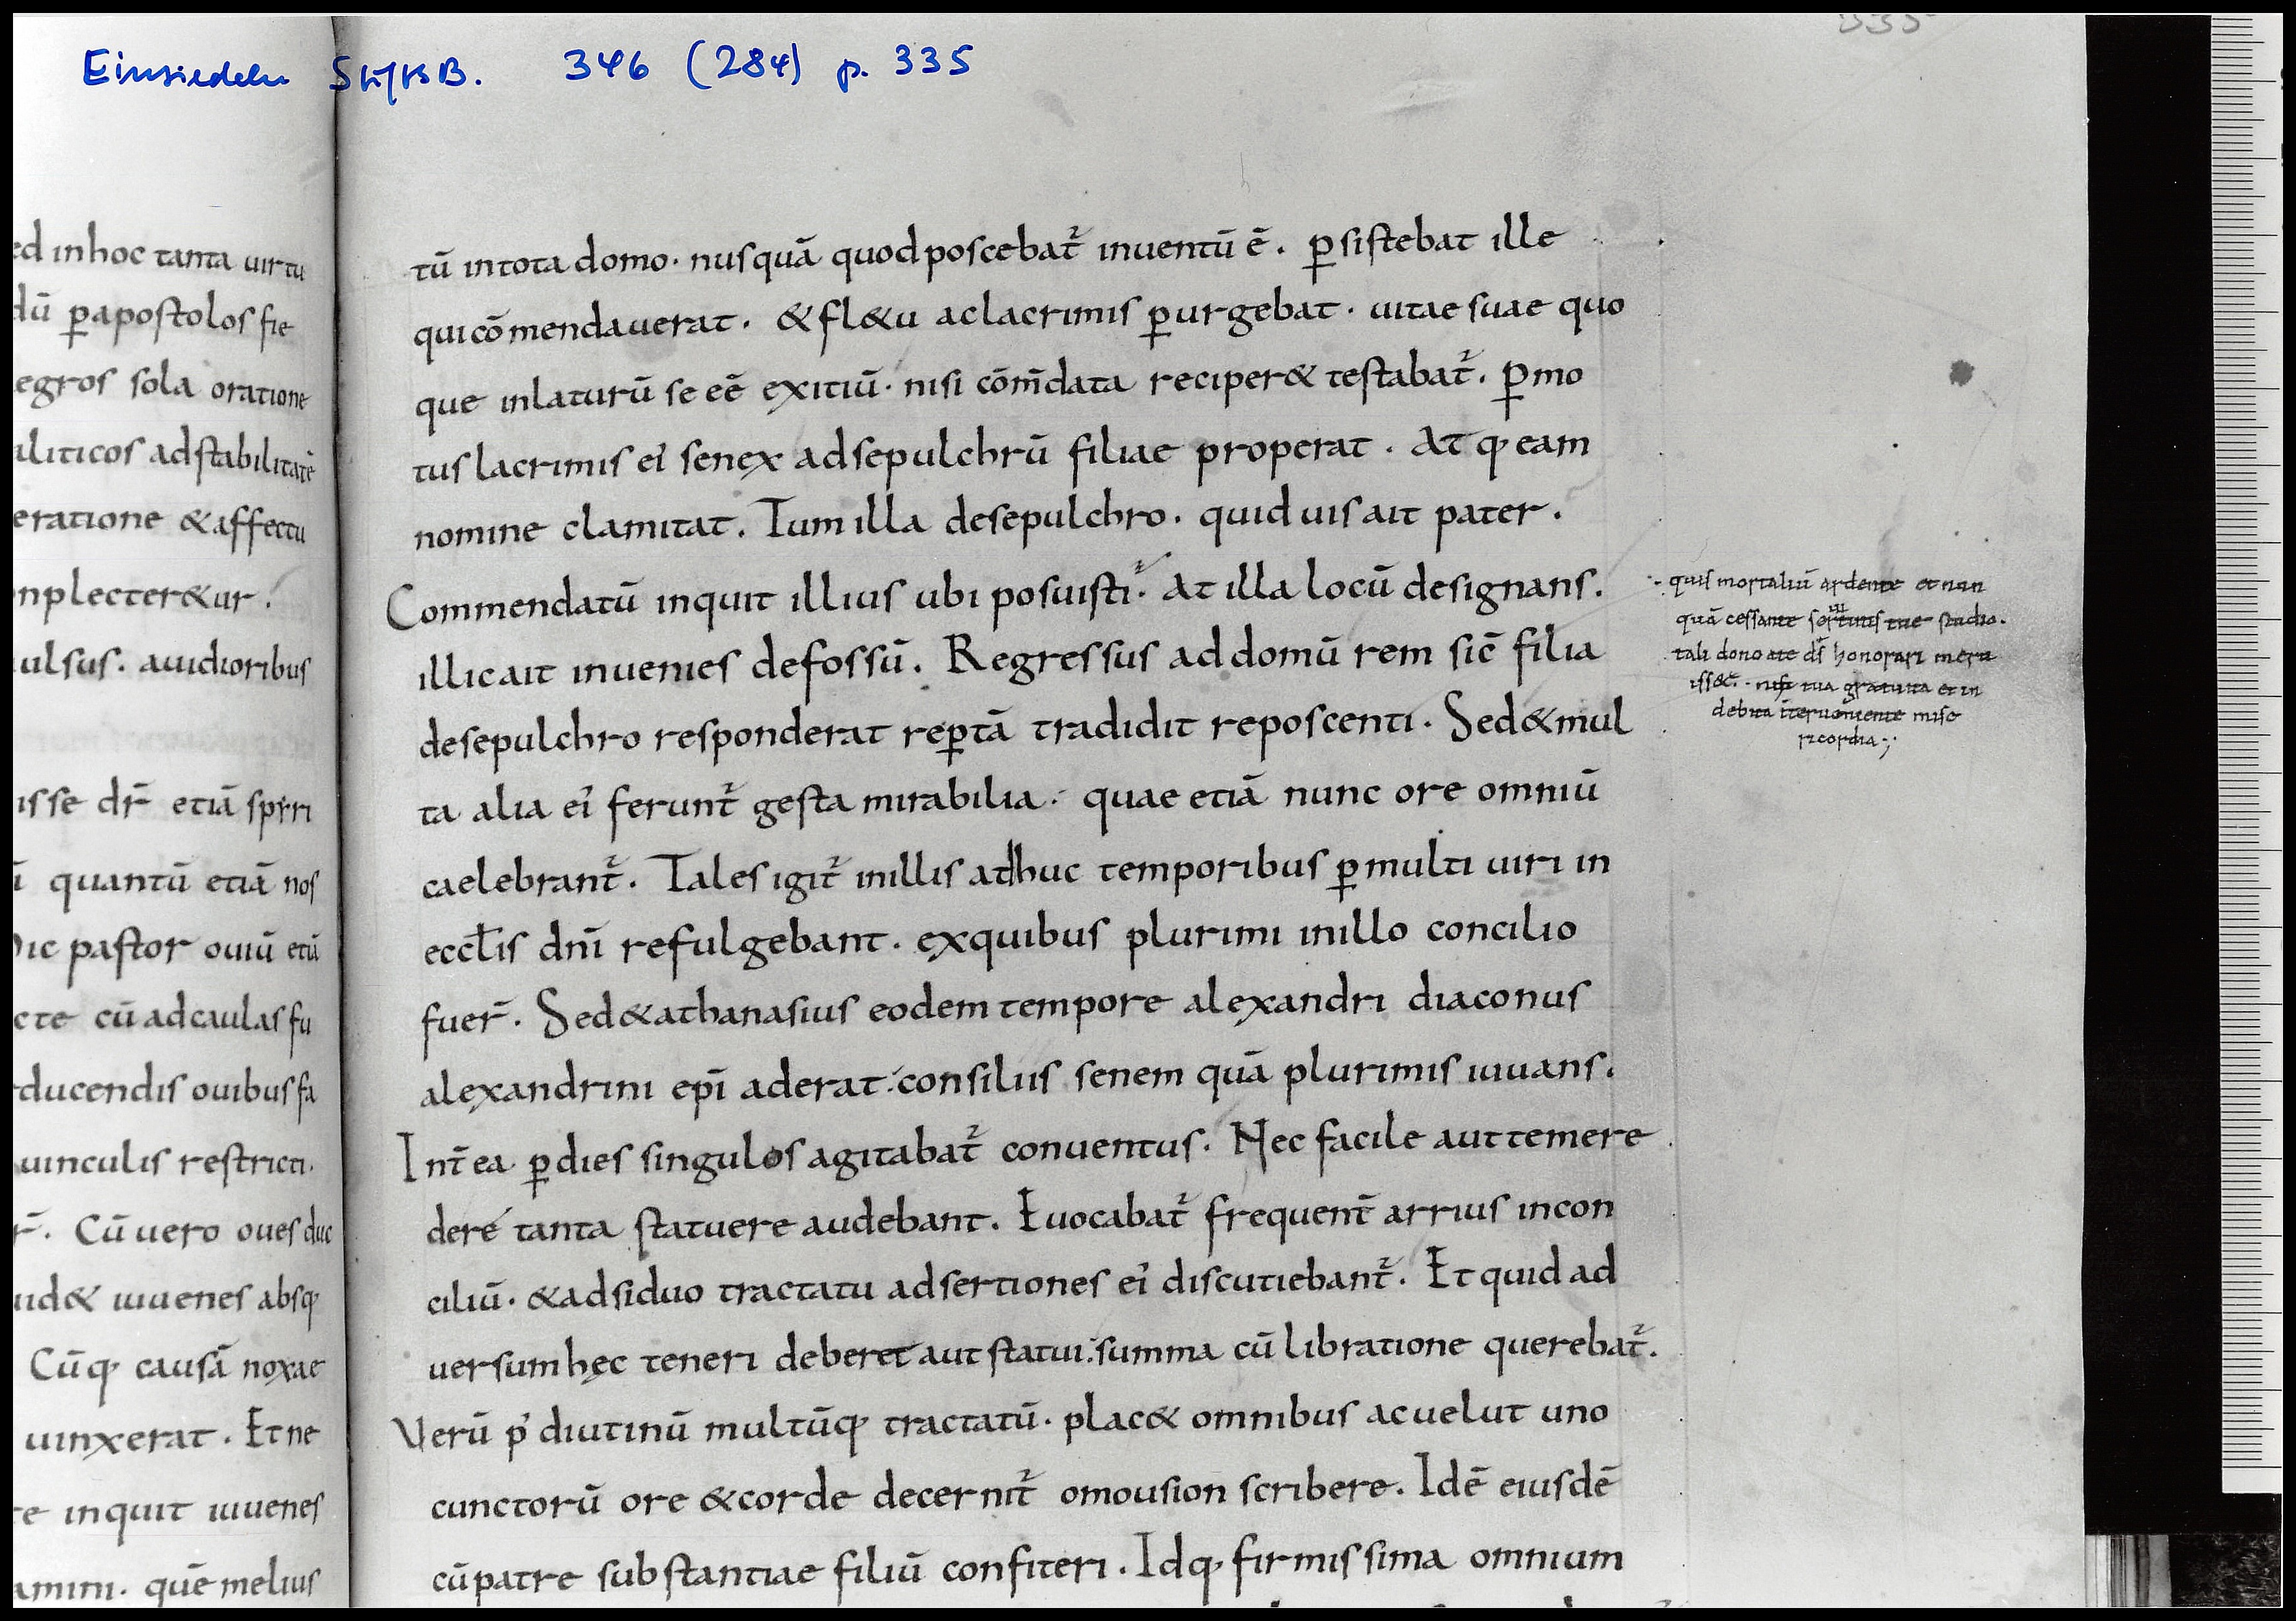 Einsiedeln StiftsB. 346 (284) p. 335
335
ed inhoc tanta uirtu
dū ꝑapostolos fie
egros sola oratione
aliticos adstabilitatē
eratione &affectu
nplecter&ur.
ulsus. auidioribus
isse dr̄ etiā spiri
ī quantū etiā nos
ic pastor ouiū etiā
cte cū adcaulas fu
ducendis ouibus fa
uinculis restricti.
r̄. Cū uero oues duc
uid& iuuenes absq·
Cūq· causā noxae
uinxerat. Et ne
te inquit iuuenes
amini. quē melius
tū intota domo· nusquā quodposcebat᷑ inuentū ē. ꝑsistebat ille
quicōmendauerat. &fl&u aclacrimis ꝑurgebat· uitae suae quo
que inlaturū se eē exitiū· nisi cōm̄data reciper& testabat᷑. ꝑmo
tus lacrimis ei᾽ senex adsepulchrū filiae properat. Atq· eam
nomine clamitat. Tum illa desepulchro. quid uis ait pater.
Commendatū inquit illius ubi posuisti? At illa locū designans.
illic ait inuenies defossū. Regressus addomū rem sic̄ filia
desepulchro responderat reꝑtā tradidit reposcenti. Sed&mul
ta alia ei᾽ ferunt᷑ gesta mirabilia· quae etiā nunc ore omniū
caelebrant᷑. Tales igit᷑ inillis adhuc temporibus ꝑmulti uiri in
eccl̄is dn̄i refulgebant. exquibus plurimi inillo concilio
fuer̄. Sed&athanasius eodem tempore alexandri diaconus
alexandrini ep̄i aderat· consiliis senem quā plurimis iuuans.
Int̄ea ꝑdies singulos agitabat᷑ conuentus. Nec facile aut temere
dere tanta statuere audebant. Euocabat᷑ frequent̄ arrius incon
ciliū· &adsiduo tractatu adsertiones ei᾽ discutiebant᷑. Et quid ad
uersum hęc teneri deberet aut statui· summa cū libratione querebat᷑.
Verū p᾽ diutinū multūq· tractatū· plac& omnibus acuelut uno
cunctorū ore &corde decernit᷑ omousion scribere. Idē eiusdē
cūpatre substantiae filiū confiteri. Idq· firmissima omnium
quis mortaliū ardente et nun
quā cessante studio.
tali dono a te d̄s honorari meru
iss&. nisi tua gratuita et in
debita īteruēniente mise
ricordia·;